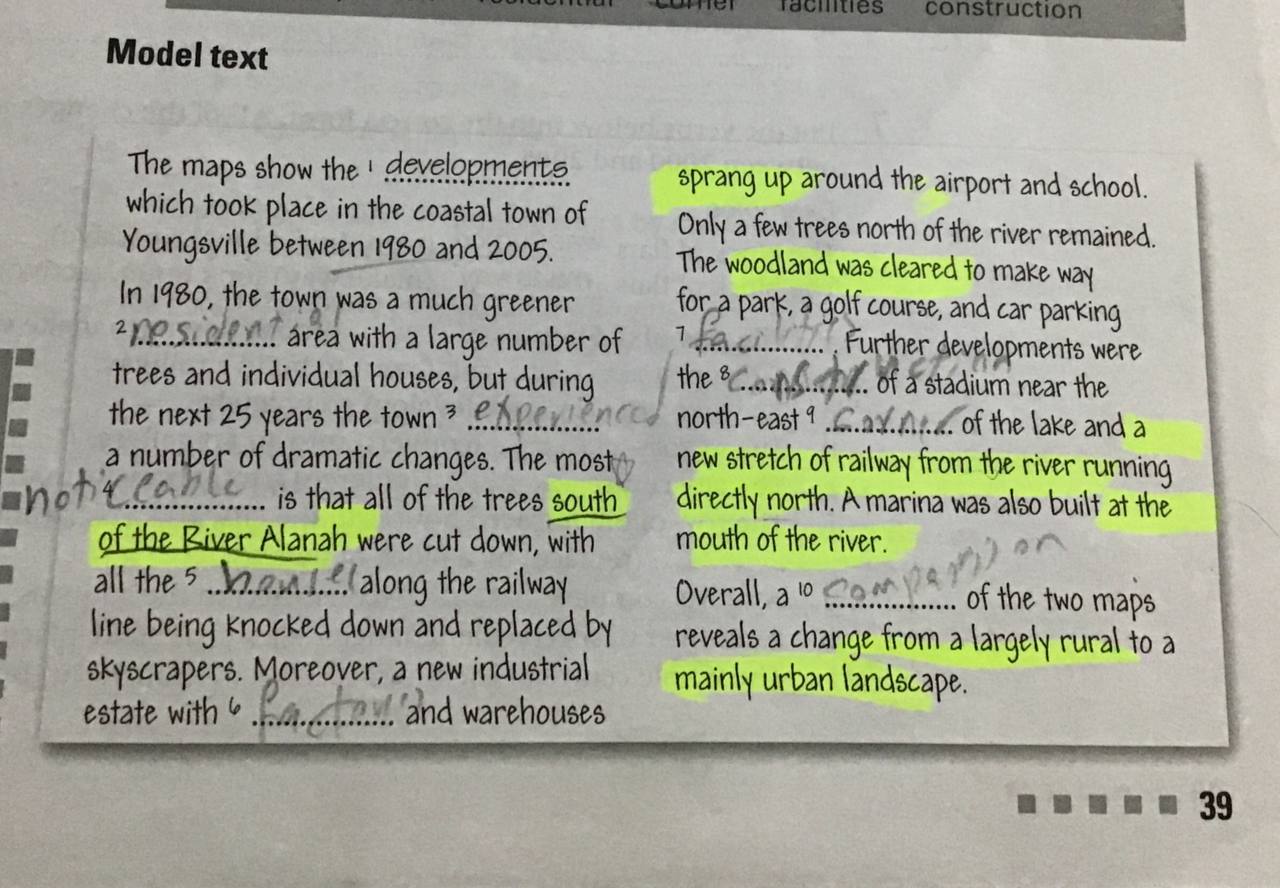 residential corner facilities construction
Model text
The maps show the 1 developments
which took place in the coastal town of
Youngsville between 1980 and 2005.
In 1980, the town was a much greener
2 residential area with a large number of
trees and individual houses, but during
the next 25 years the town 3 experienced
a number of dramatic changes. The most
4 noticeable is that all of the trees south
of the River Alanah were cut down, with
all the 5 houses along the railway
line being knocked down and replaced by
skyscrapers. Moreover, a new industrial
estate with 6 and warehouses
sprang up around the airport and school.
Only a few trees north of the river remained.
The woodland was cleared to make way
for a park, a golf course, and car parking
7 facilities. Further developments were
the 8 construction of a stadium near the
north-east 9 corner of the lake and a
new stretch of railway from the river running
directly north. A marina was also built at the
mouth of the river.
Overall, a 10 comparison of the two maps
reveals a change from a largely rural to a
mainly urban landscape.
39